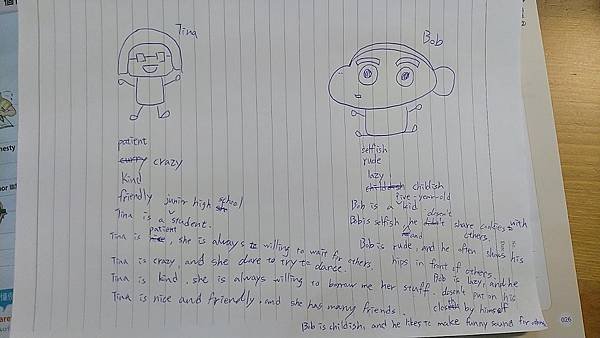 Tina
patient
crazy
kind
friendly
Tina is a junior high school student.
Tina is patient, she is always to willing to wait for others.
Tina is crazy, and she dare to try to dance.
Tina is kind. she is always willing to borrow me her stuff.
Tina is nice and friendly, and she has many friends.
Bob
selfish
rude
lazy
childish
Bob is a five-year-old kid
Bob is selfish, and he doesn't share cookies with others.
Bob is rude, and he often shows his
hips in front of others.
Bob is lazy, and he
doesn't put on his
clothes by himself
Bob is childish, and he likes to make funny sound for others
026